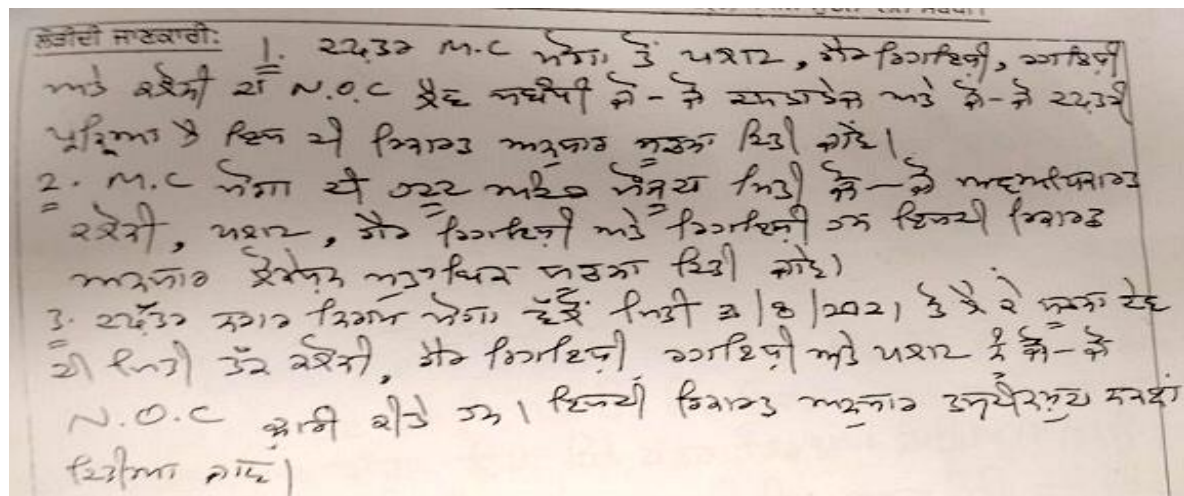 ਲੋੜੀਂਦੀ ਜਾਣਕਾਰੀ: 1. ਦਫ਼ਤਰ M.C ਮੋਗਾ ਤੋਂ ਪਲਾਟ, ਗੈਰ ਰਿਹਾਇਸ਼ੀ, ਰਹਾਇਸ਼ੀ
ਅਤੇ ਕਲੋਨੀ ਦਾ N.O.C ਲੈਣ ਸਬੰਧੀ ਜੋ-ਜੋ ਦਸਤਾਵੇਜ ਅਤੇ ਜੋ-ਜੋ ਦਫ਼ਤਰੀ
ਪ੍ਰਕ੍ਰਿਆ ਹੈ ਇਸ ਦੀ ਰਿਕਾਰਡ ਅਨੁਸਾਰ ਸੂਚਨਾ ਦਿਤੀ ਜਾਵੇ।
2. M.C ਮੋਗਾ ਦੀ ਹਦੂਦ ਅੰਦਰ ਮੌਜੂਦਾ ਮਿਤੀ ਜੋ-ਜੋ ਅਣਅਧਿਕਾਰਤ
ਕਲੋਨੀ, ਪਲਾਟ, ਗੈਰ ਰਿਹਾਇਸ਼ੀ ਅਤੇ ਰਿਹਾਇਸ਼ੀ ਹਨ ਇਸਦੀ ਰਿਕਾਰਡ
ਅਨੁਸਾਰ ਸੂਚਨਾ ਦਿਤੀ ਜਾਵੇ।
3. ਦਫ਼ਤਰ ਨਗਰ ਨਿਗਮ ਮੋਗਾ ਵੱਲੋਂ ਮਿਤੀ /8/2021 ਤੋਂ ਲੈ ਕੇ ਸੂਚਨਾ ਦੇਣ
ਦੀ ਮਿਤੀ ਤੱਕ ਕਲੋਨੀ, ਗੈਰ ਰਿਹਾਇਸ਼ੀ, ਰਹਾਇਸ਼ੀ ਅਤੇ ਪਲਾਟ ਨੂੰ ਜੋ-ਜੋ
N.O.C ਜਾਰੀ ਕੀਤੇ ਹਨ। ਇਸਦੀ ਰਿਕਾਰਡ ਅਨੁਸਾਰ ਤਸਦੀਕਸ਼ੁਦਾ ਨਕਲਾਂ
ਦਿਤੀਆ ਜਾਣ।